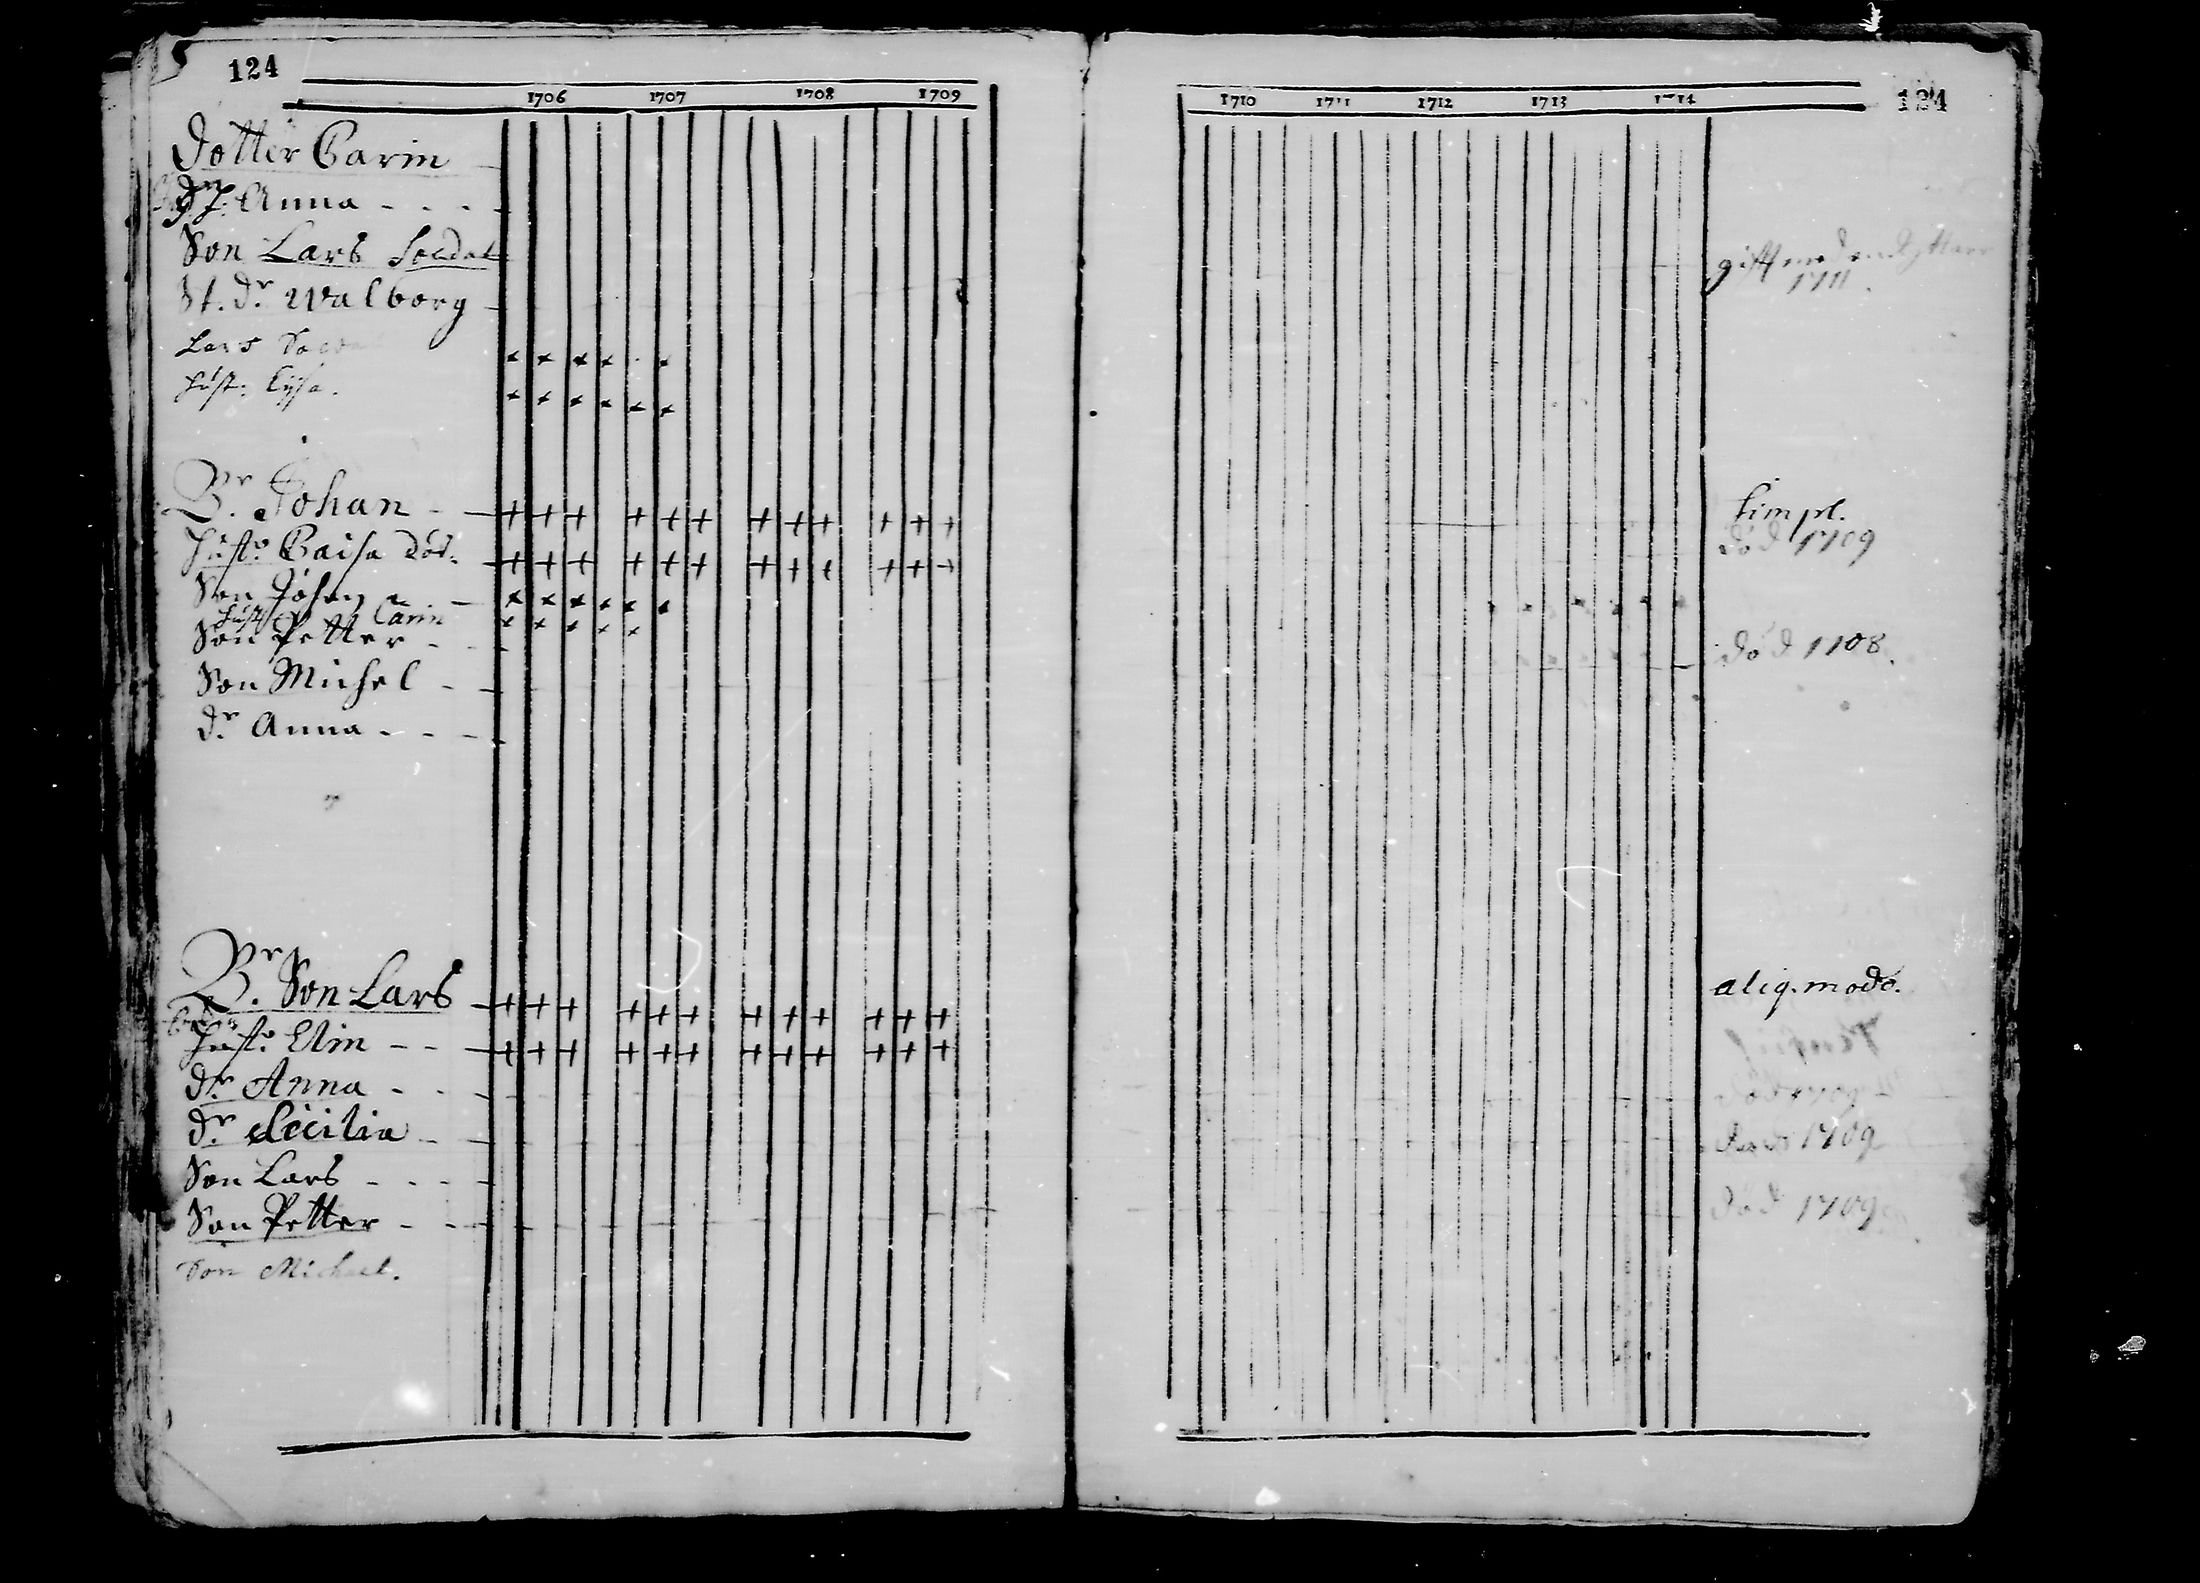 124
1706 1707 1708 1709
Dotter Carin
Anna
Son Lars Soldat
St. Dr Walborg
Lars Soldat
Hust: Lysa.
Br. Johan
Hust: Caisa död.
Son Johan
Hust: Carin
Son Petter
Son Michel
Dr Anna
Br. Son Lars
Hust: Elin
Dr Anna
Dr Cecilia
Son Lars
Son Petter
Son Michael.
1710 1711 1712 1713 1714
124
gift med
1711.
simpl.
död 1709
död 1708.
aliq. modo.
död 1709
död 1709
död 1709